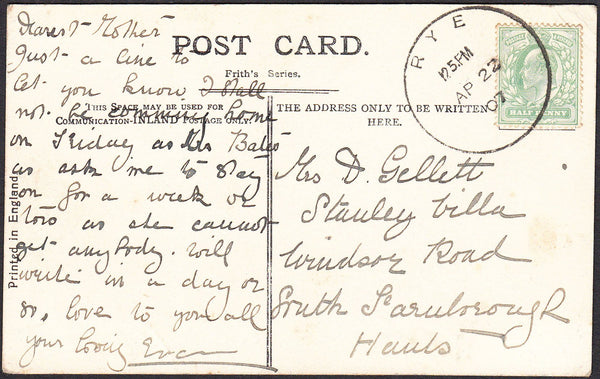 POST CARD.
Frith's Series.
THIS SPACE MAY BE USED FOR
COMMUNICATION-INLAND POSTAGE ONLY.
THE ADDRESS ONLY TO BE WRITTEN
HERE.
Printed in England
RYE
12.5.PM
AP 22
07
HALFPENNY
Dearest Mother
Just a line to
let you know I shall
not be comming home
on Friday as Mrs Bates
as ask me to stay
on for a week or
two as she cannot
get anybody. Will
write in a day or
so, love to you all
your loving Eva
Mrs D. Gellett
Stanley Villa
Windsor Road
South Farnborough
Hants